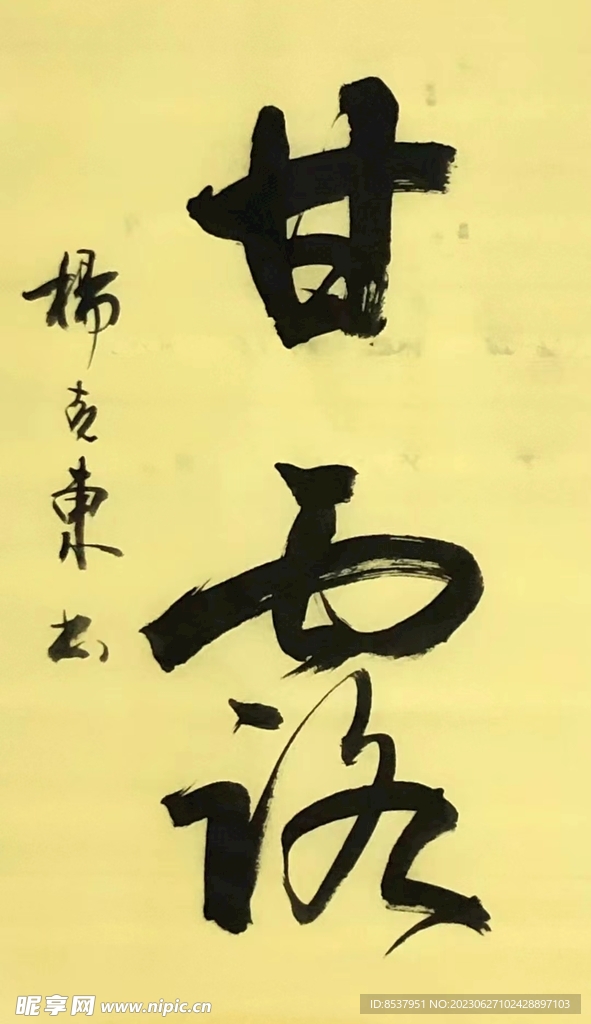 甘露
楊克東书
昵享网 www.nipic.cn
ID:8537951 NO:20230627102428897103